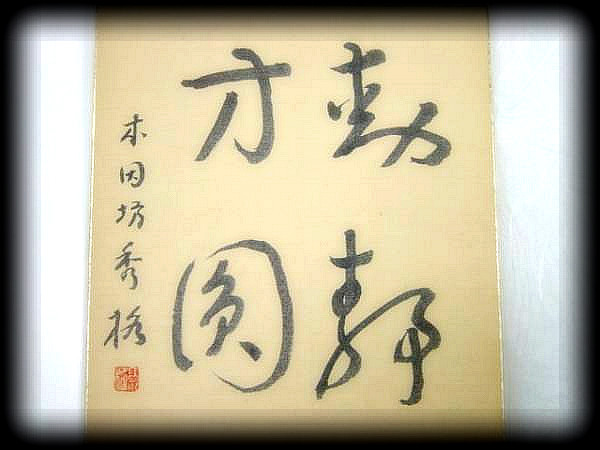 動静
方圓
本因坊秀格